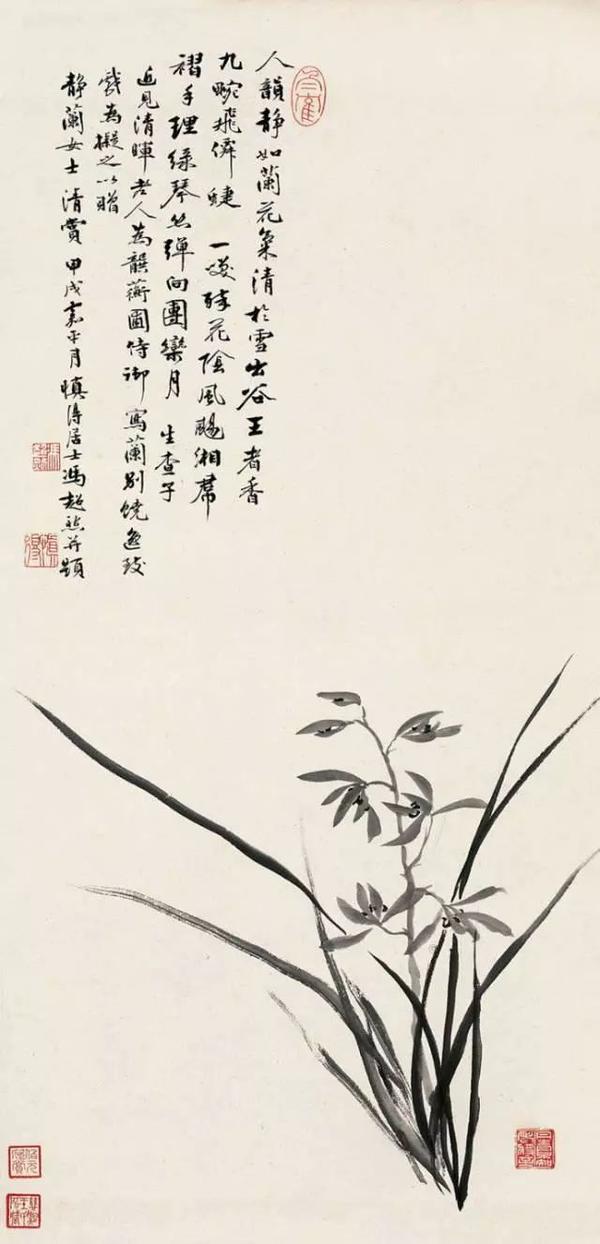 人韻靜如蘭花氣清於雪出谷王者香
九畹飛僊蜨 一雙碎花陰風颺湘裙
褶手理綠琴絲彈向團欒月 生查子
近見清暉老人為馔蘅圃侍御寫蘭別饒逸致
戲為擬之以贈
靜蘭女士清賞 甲戌嘉平月慎得居士馮超然并題